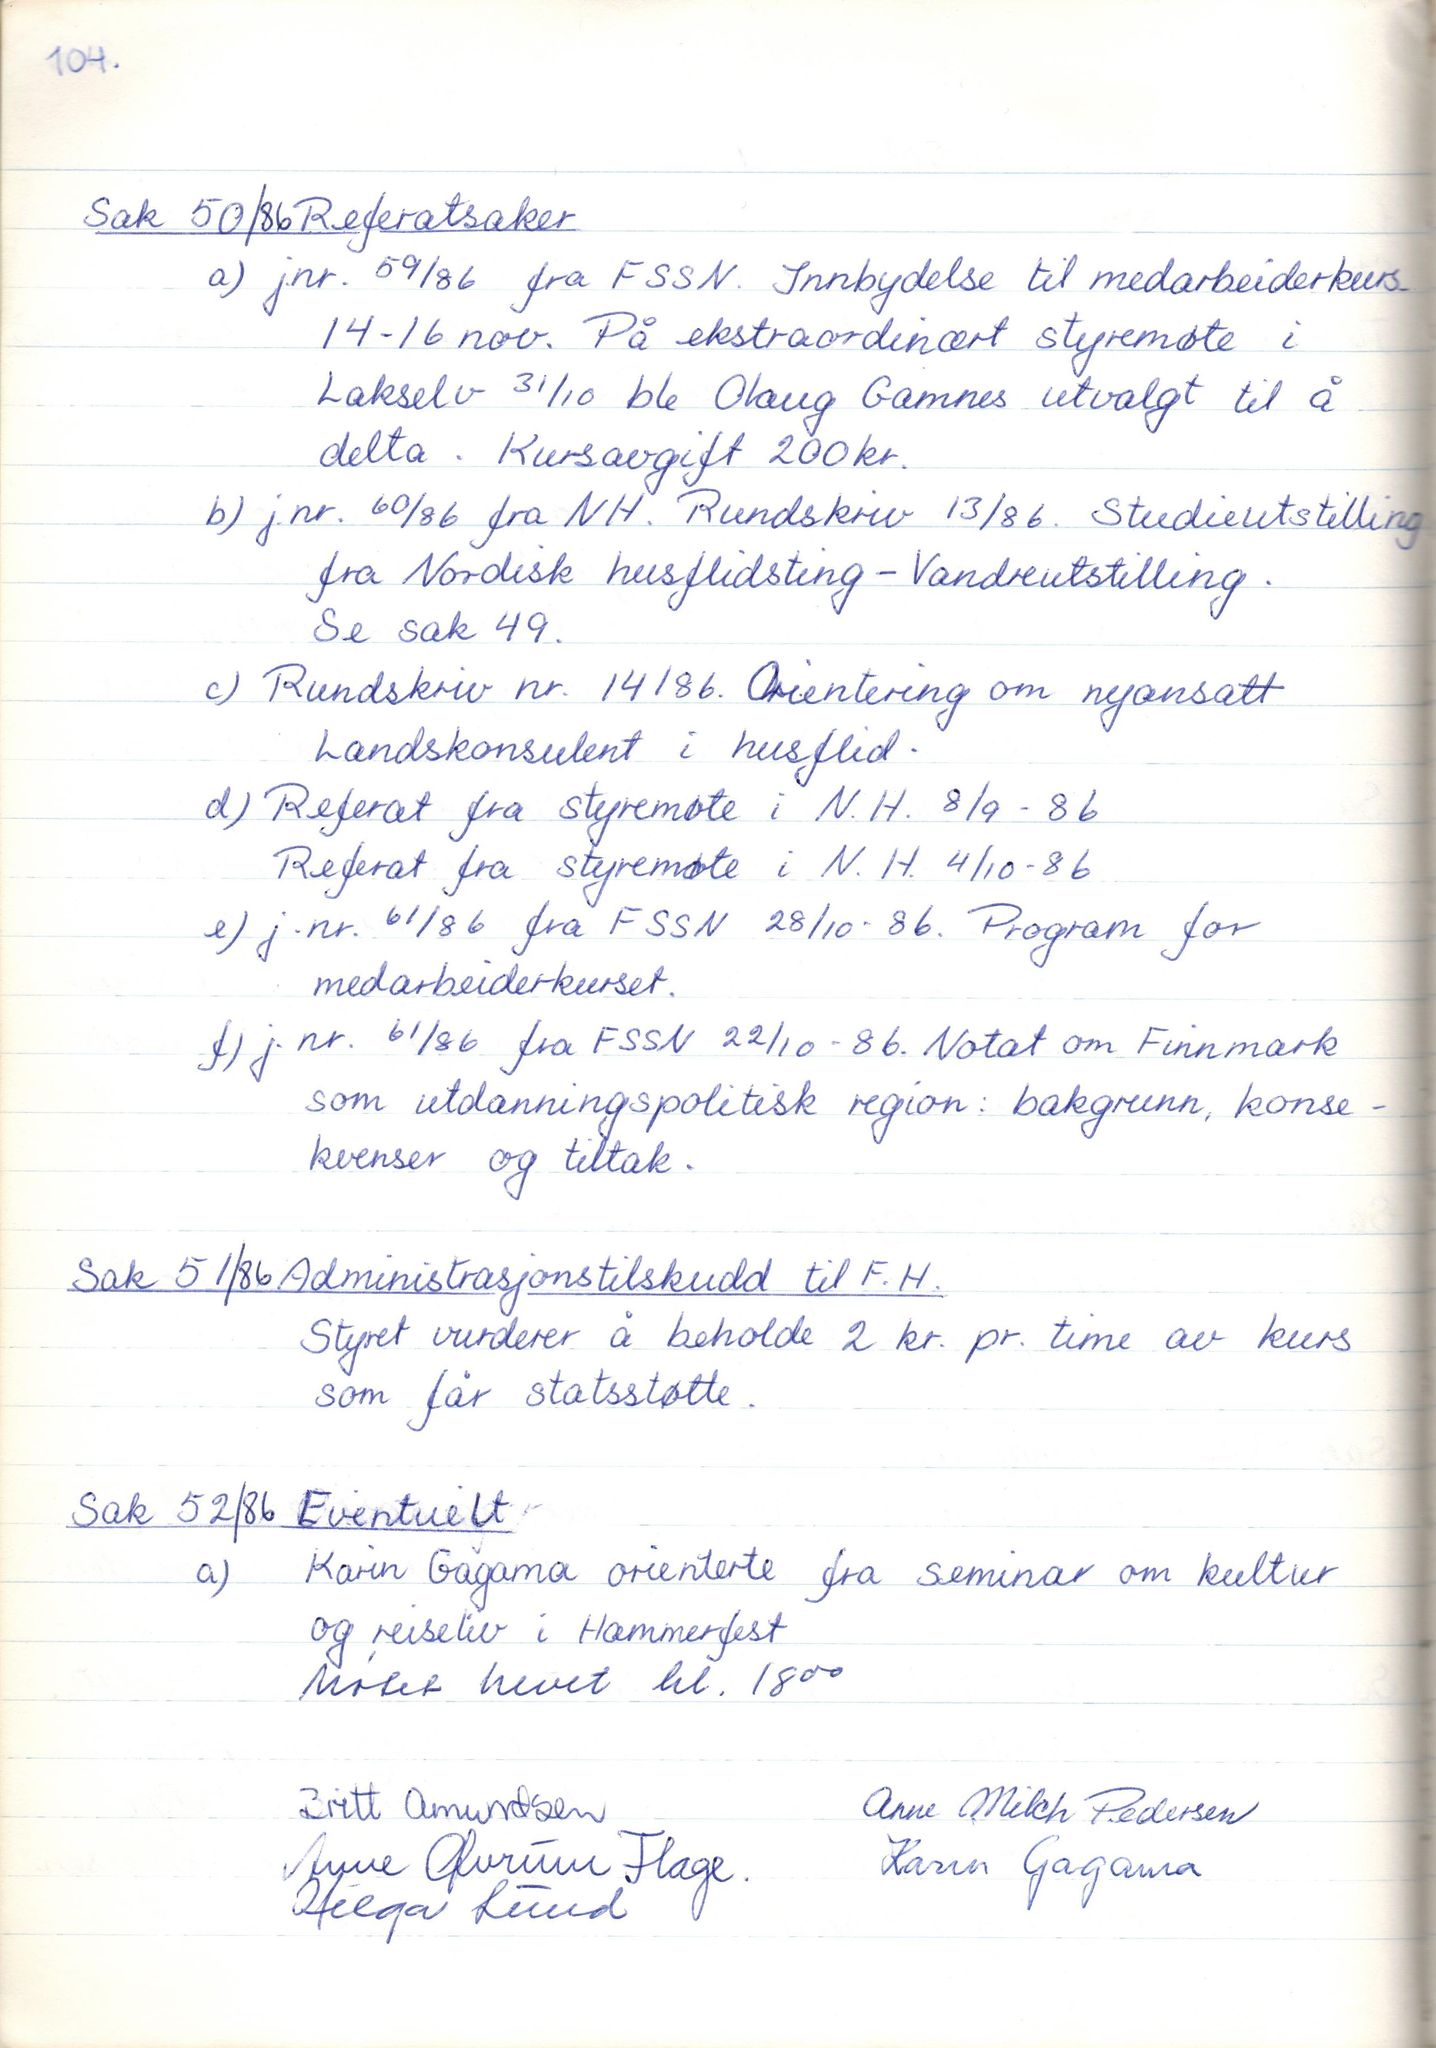 104.
Sak 50/86 Referatsaker
a) j.nr. 59/86 fra FSSN. Innbydelse til medarbeiderkurs
14-16 nov. På ekstraordinært styremøte i
Lakselv 31/10 ble Olaug Gamnes utvalgt til å
delta. Kursavgift 200 kr.
b) j.nr. 60/86 fra NH. Rundskriv 13/86. Studieutstilling
fra Nordisk husflidsting - Vandreutstilling.
Se sak 49.
c) Rundskriv nr. 14/86. Orientering om nyansatt
Landskonsulent i husflid.
d) Referat fra styremøte i N.H. 8/9 - 86
Referat fra styremøte i N.H. 4/10-86
e) j.nr. 61/86 fra FSSN 28/10-86. Program for
medarbeiderkurset.
f) j.nr. 61/86 fra FSSN 22/10-86. Notat om Finnmark
som utdanningspolitisk region: bakgrunn, konse-
kvenser og tiltak.
Sak 51/86 Administrasjonstilskudd til F.H.
Styret vurderer å beholde 2 kr. pr. time av kurs
som får statsstøtte.
Sak 52/86 Eventuelt
a) Karin Gagama orienterte fra seminar om kultur
og reiseliv i Hammerfest
Møtet hevet kl. 18⁰⁰
Britt Amundsen Anne Milch Pedersen
Anne Flage. Karin Gagama
Helga Lund